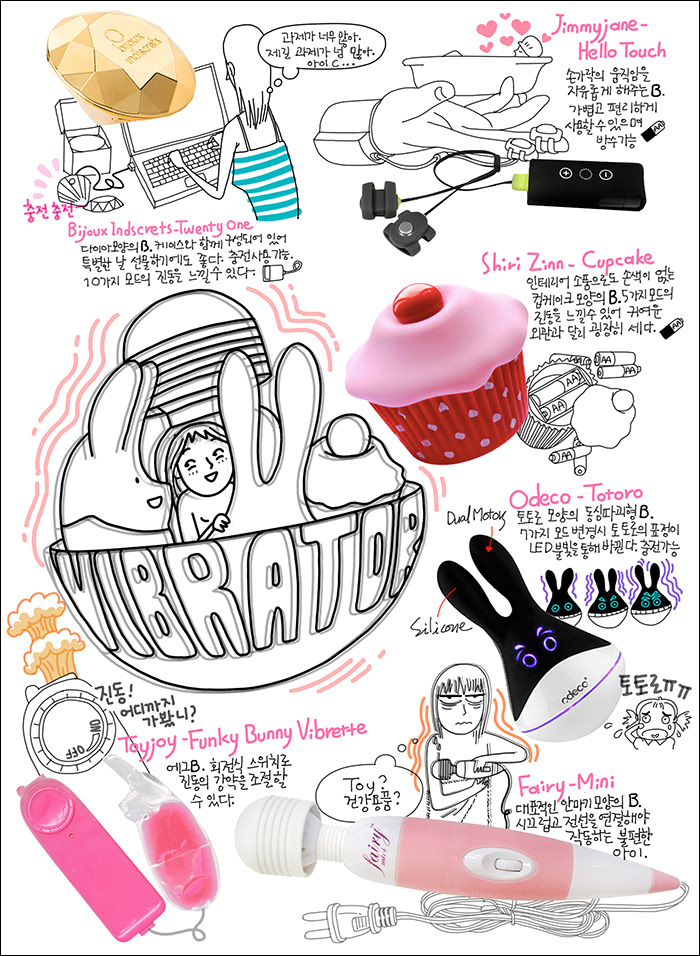 Bijoux
Indiscrets
과제가 너무 많아.
제길 과제가 넘 많아.
아이 C...
Jimmyjane-
Hello Touch
손가락의 움직임을
자유롭게 해주는 B.
가볍고 편리하게
사용할 수 있으며
방수가능
충전충전
Bijoux Indscrets-Twenty One
다이아모양의 B. 케이스와 함께 구성되어 있어
특별한 날 선물하기에도 좋다. 충전사용가능.
10가지 모드의 진동을 느낄 수 있다.
Shiri Zinn - Cupcake
인테리어 소품으로도 손색이 없는
컵케이크 모양의 B. 5가지 모드의
진동을 느낄 수 있어 귀여운
외관과 달리 굉장히 세다.
AA
AA
AA
AA
VIBRATOR
Odeco - Totoro
토토로 모양의 동심파괴형 B.
7가지 모드 변경시 토토로의 표정이
LED불빛을 통해 바뀐다. 충전가능
Dual Motors
Silicone
odeco
토토로ㅠㅠ
진동!
어디까지
가봤니?
ON OFF
Toyjoy-Funky Bunny Vibrette
에그B. 회전식 스위치로
진동의 강약을 조절할
수 있다.
Toy?
건강용품?
Fairy-Mini
대표적인 안마기 모양의 B.
시끄럽고 전선을 연결해야
작동하는 불편한
아이.
fairy
mini